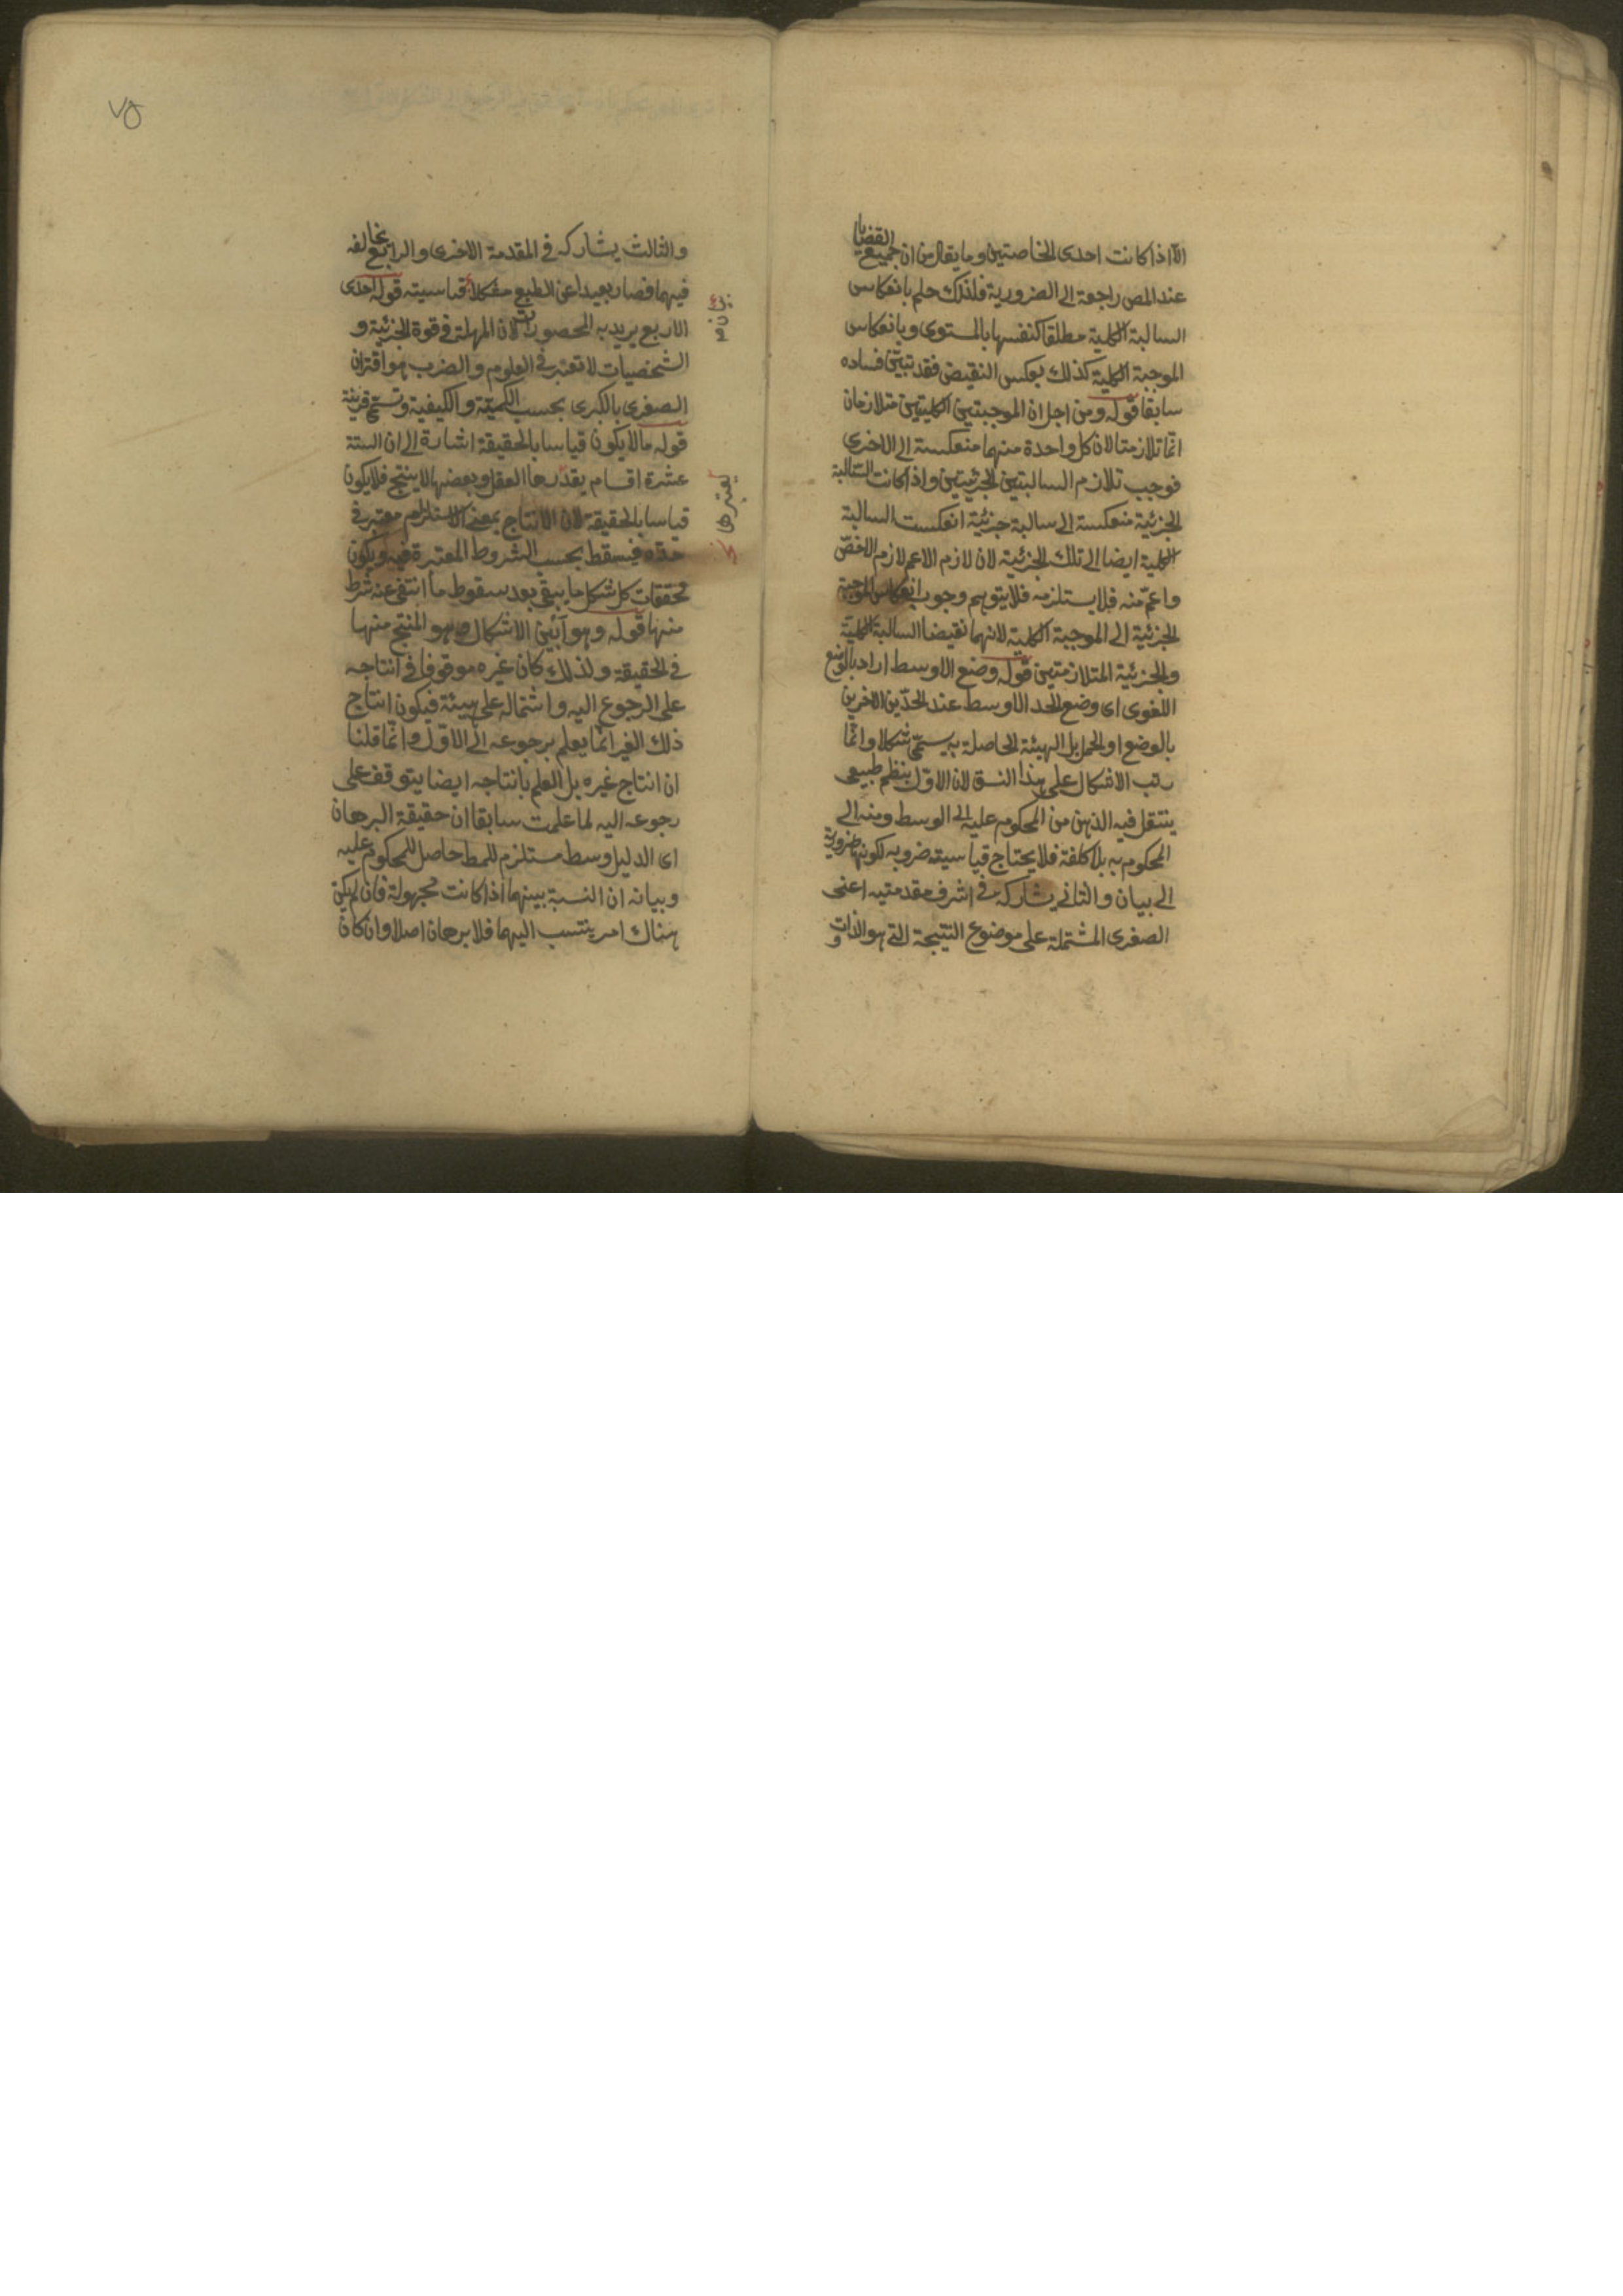 الا اذا كانت احدى الخاصتين وما يقال من ان جميع القضايا
عند المص راجعة الى الضرورية فلذلك حكم بانعكاس
السالبة الكلية مطلقا كنفسها بالمستوى وبانعكاس
الموجبة الكلية كذلك بعكس النقيض فقد تبين فساده
سابقا قوله ومن اجل ان الموجبتين الكليتين متلازمان
انما تلازمتا لان كل واحدة منهما منعكسة الى الاخرى
فوجب تلازم السالبتين الجزئيتين واذا كانت السالبة
الجزئية منعكسة الى سالبة جزئية انعكست السالبة
الكلية ايضا الى تلك الجزئية لان لازم الاعم لازم الاخص
واعم منه فلا يستلزمه فلا يتوهم وجوب انعكاس الموجبة
الجزئية الى الموجبة الكلية لانهما نقيضا السالبة الكلية
والجزئية المتلازمتين قوله وضع الاوسط اراد بالوضع
اللغوى اى وضع الحد الاوسط عند الحدين الاخرين
بالوضع او الحمل بل الهيئة الحاصلة به يسمى شكلا وانما
رتب الاشكال على هذا النسق لان الاول بنظم طبيعى
ينتقل فيه الذهن من المحكوم عليه الى الوسط ومنه الى
المحكوم به بلا كلفة فلا يحتاج قياسيته ضروبه لكونها ضرورية
الى بيان والثانى يشاركه فى اشرف مقدمتيه اعنى
الصغرى المشتملة على موضوع النتيجة التى هو الذات و
٧٥
والثالث يشاركه فى المقدمة الاخرى والرابع يخالفه
فيهما فصار بعيدا عن الطبع مشكلا قياسيته قوله احدى
الاربع يريد به المحصورات لان المهملة فى قوة الجزئية و
الشخصيات لا تعتبر فى العلوم والضرب هو اقتران
الصغرى بالكبرى بحسب الكمية والكيفية وتسمى قرينة
قوله ما لا يكون قياسا بالحقيقة اشارة الى ان الستة
عشرة اقسام يقدرها العقل وبعضها لا ينتج فلا يكون
قياسا بالحقيقة لان الانتاج بمعنى الاستلزام معتبر فى
حده فيسقط بحسب الشروط المعتبرة فيه ويكون
محققات كل شكل ما يبقى بعد سقوط ما انتفى عنه شرط
منها قوله وهو ابين الاشكال وهو المنتج منها
فى الحقيقة ولذلك كان غيره موقوفا فى انتاجه
على الرجوع اليه واشتماله على هيئة فيكون انتاج
ذلك الغير انما يعلم برجوعه الى الاول وانما قلنا
ان انتاج غيره بل العلم بانتاجه ايضا يتوقف على
رجوعه اليه لما علمت سابقا ان حقيقة البرهان
اى الدليل وسط مستلزم للمط حاصل للمحكوم عليه
وبيانه ان النسبة بينهما اذا كانت مجهولة فان لم يكن
هناك امر ينتسب اليهما فلا برهان اصلا وان كان
يعتبرها